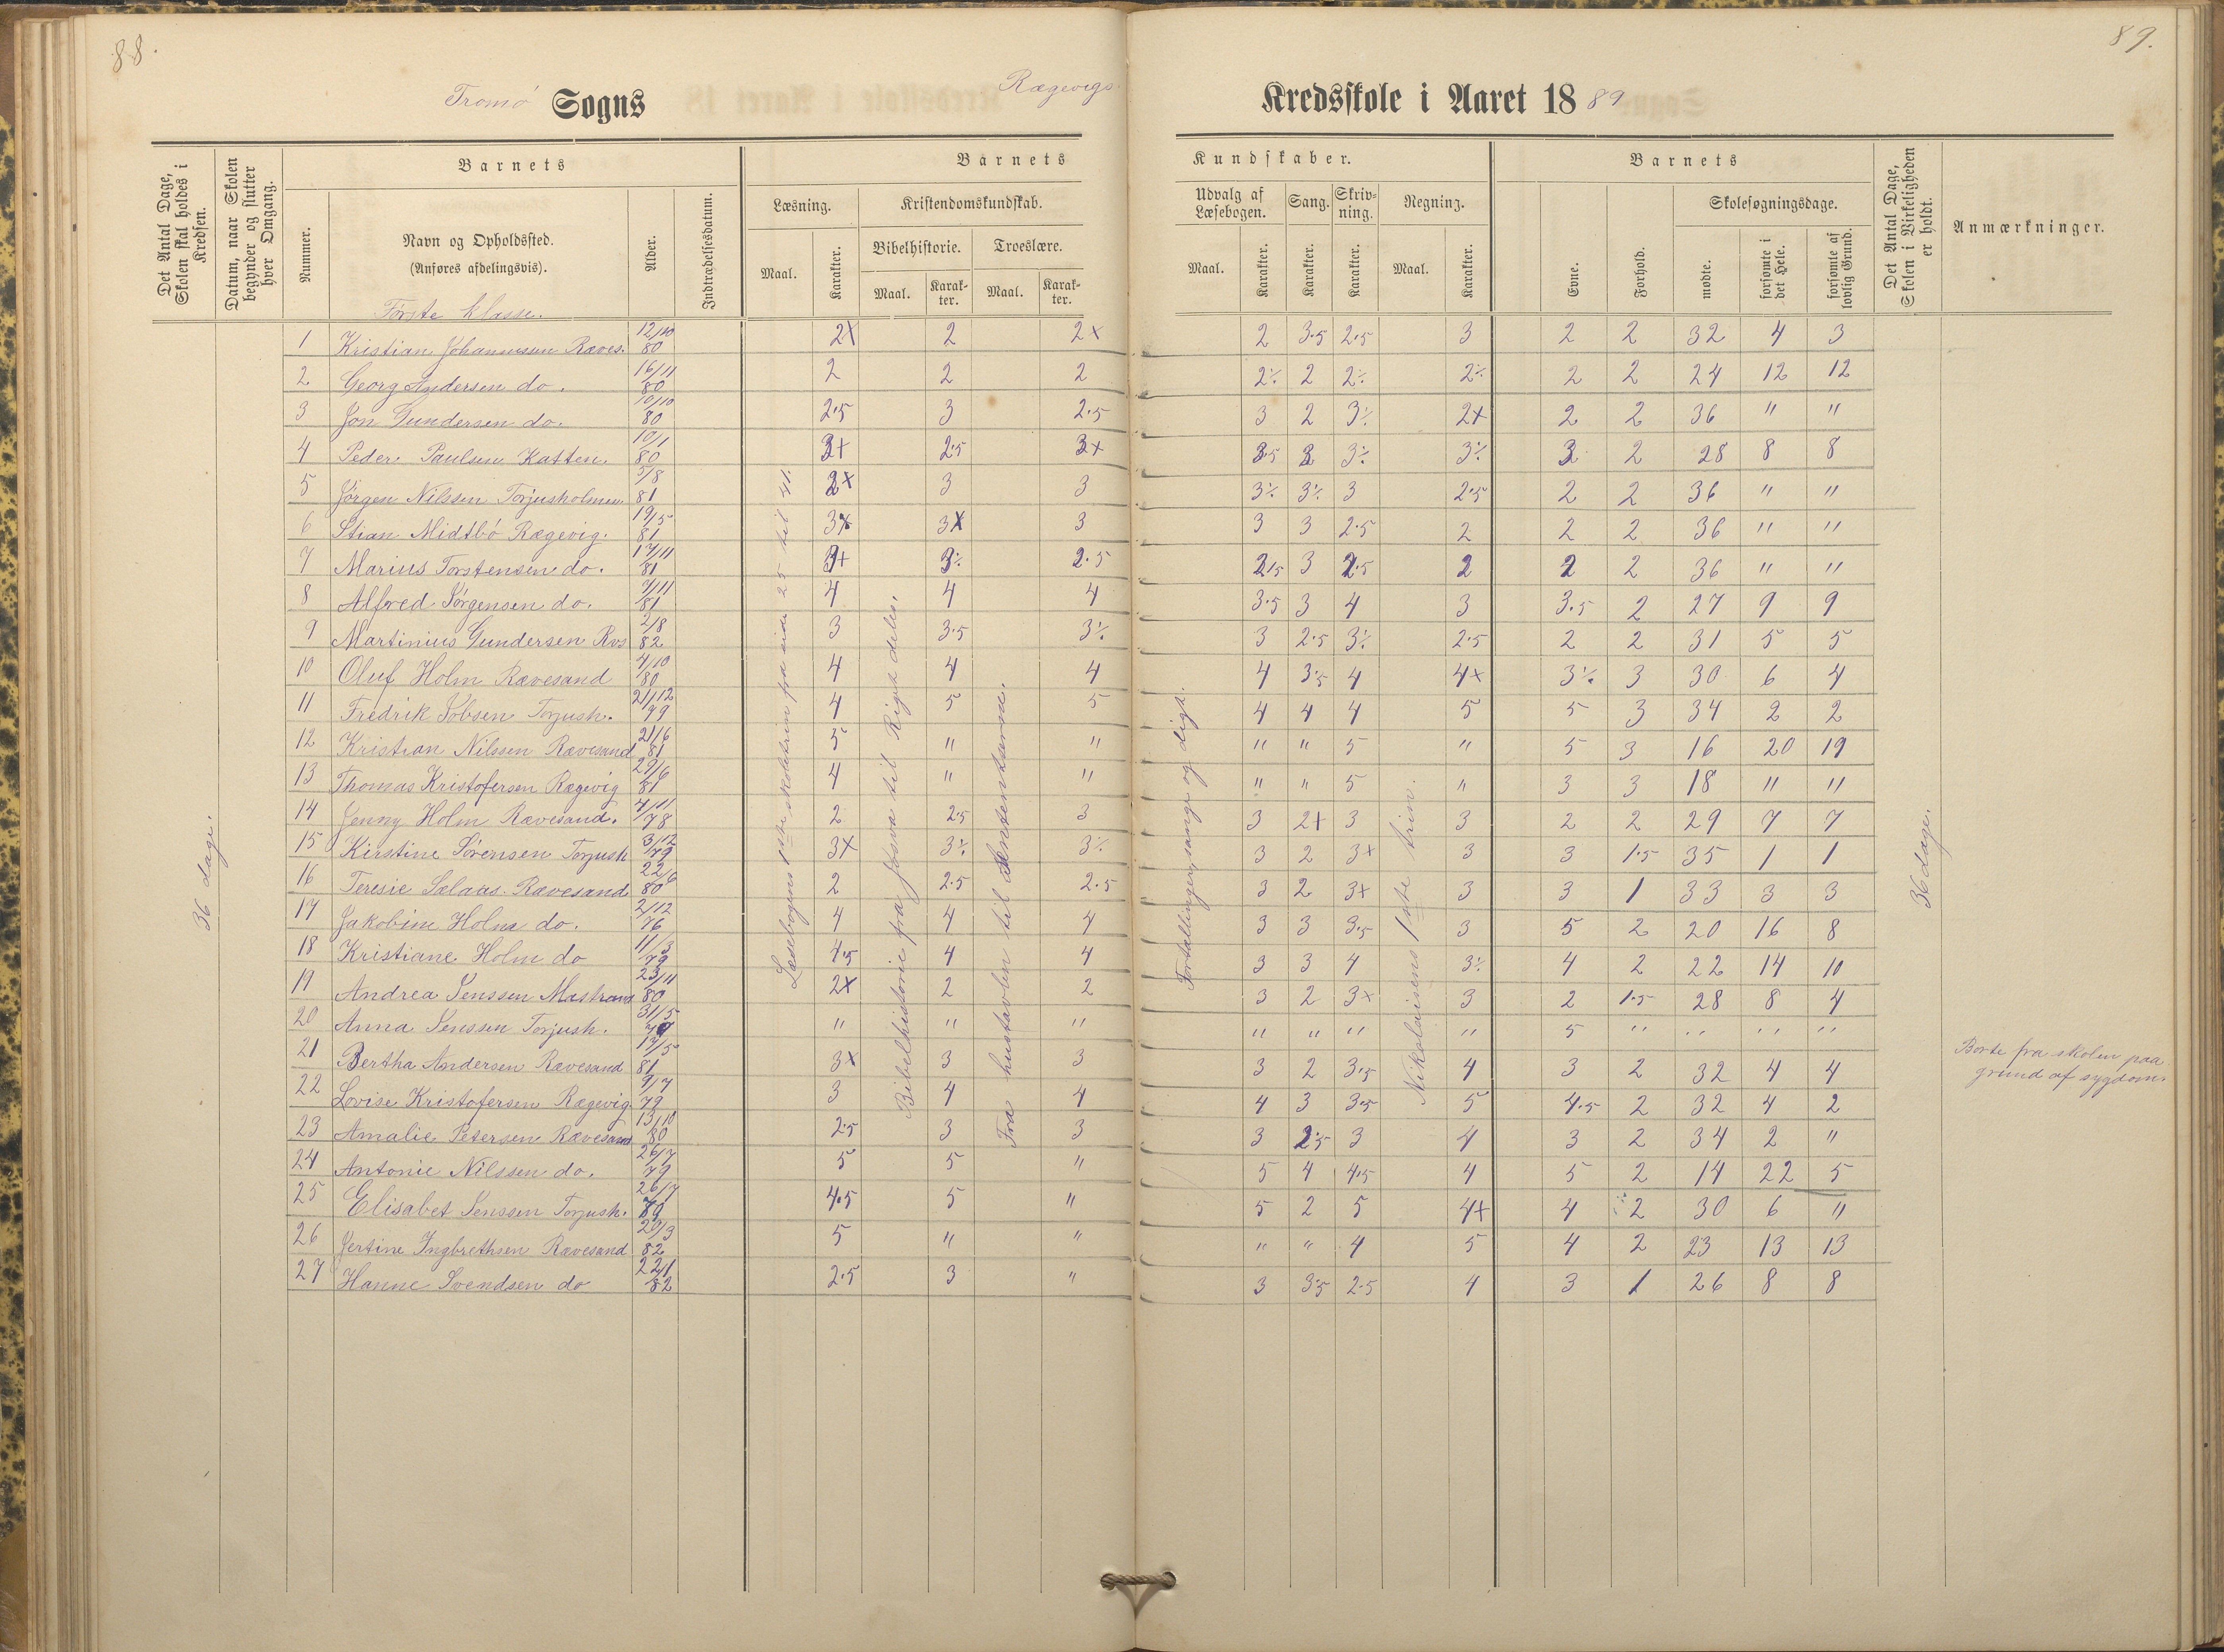 88.
89.
Tromö Sogns
Rægevigs Kredsskole i Aaret 1889
Det Antal Dage, Skolen skal holdes i Kredsen.
Datum, naar Skolen begynder og slutter hver Omgang.
Barnets
Nummer.
Navn og Opholdssted.
(Anføres afdelingsvis).
Alder.
Indtrædelsesdatum.
Barnets Kundskaber.
Læsning.
Maal.
Karakter.
Kristendomskundskab.
Bibelhistorie.
Maal.
Karakter.
Troeslære.
Maal.
Karakter.
Udvalg af Læsebogen.
Maal.
Karakter.
Sang.
Karakter.
Skrivning.
Karakter.
Regning.
Maal.
Karakter.
Barnets
Evne.
Forhold.
Skolesøgningsdage.
mødte.
forsømte i det Hele.
forsømte af lovlig Grund.
Det Antal Dage, Skolen i Virkeligheden er holdt.
Anmærkninger.
Første klasse.
36 dage.
Læsebogens 1ste skoletrin fra side 25 til 41.
Bibelhistorie fra Josva til Rigets deles.
Fra hustavlen til
Fortællinger, sange og digt.
Nikolaisens 1ste trin.
36 dage.
1 Kristian Johannessen Raves. 12/10 80 2x 2 2x 2 3.5 2.5 3 2 2 32 4 3
2 Georg Andersen do. 16/11 80 2 2 2 2÷ 2 2÷ 2÷ 2 2 24 12 12
3 Jon Gundersen do. 10/10 80 2.5 3 2.5 3 2 3÷ 2x 2 2 36 " "
4 Peder Paulsen Katten. 10/1 80 3x 2.5 3x 3.5 3 3÷ 3÷ 3 2 28 8 8
5 Jörgen Nilssen Torjusholmen. 5/8 81 2x 3 3 3÷ 3÷ 3 2.5 2 2 36 " "
6 Stian Midtbö Rægevig. 19/5 81 3x 3x 3 3 3 2.5 2 2 2 36 " "
7 Marius Torstensen do. 17/11 81 3x 3÷ 2.5 2.5 3 2.5 2 2 2 36 " "
8 Alfred Jörgensen do. 7/11 81 4 4 4 3.5 3 4 3 3.5 2 27 9 9
9 Martinius Gundersen Rvs 2/8 82 3 3.5 3÷ 3 2.5 3÷ 2.5 2 2 31 5 5
10 Oluf Holm Rævesand 4/10 80 4 4 4 4 3.5 4 4x 3÷ 3 30 6 4
11 Fredrik Jobsen Torjush. 21/12 79 4 5 5 4 4 4 5 5 3 34 2 2
12 Kristian Nilssen Rævesand 21/6 81 5 " " " " 5 " 5 3 16 20 19
13 Thomas Kristofersen Rægevig 29/6 81 4 " " " " 5 " 3 3 18 " "
14 Jenny Holm Rævesand. 4/11 78 2 2.5 3 3 2x 3 3 2 2 29 7 7
15 Kirstine Sörensen Torjush 3/12 79 3x 3÷ 3÷ 3 2 3x 3 3 1.5 35 1 1
16 Teresie Salaas. Rævesand 22/6 80 2 2.5 2.5 3 2 3x 3 3 1 33 3 3
17 Jakobine Holm do. 2/12 76 4 4 4 3 3 3.5 3 5 2 20 16 8
18 Kristiane Holm do 11/3 79 4.5 4 4 3 3 4 3÷ 4 2 22 14 10
19 Andrea Jenssen Mastrand 23/11 80 2x 2 2 3 2 3x 3 2 1.5 28 8 4
20 Anna Jenssen Torjush. 31/5 " " " " " " " 5 " " " "
21 Bertha Andersen Rævesand 17/5 81 3x 3 3 3 2 3.5 4 3 2 32 4 4
Borte fra skolen paa
grund af sygdom.
22 Lovise Kristofersen Rægevig. 9/7 79 3 4 4 4 3 3.5 5 4.5 2 32 4 2
23 Amalie Petersen Rævesand 13/10 80 2.5 3 3 3 2.5 3 4 3 2 34 2 "
24 Antonie Nilssen do. 26/7 79 5 5 " 5 4 4.5 4 5 2 14 22 5
25 Elisabet Jenssen Torjush. 26/7 79 4.5 5 " 5 2 5 4x 4 2 30 6 "
26 Jertine Ingbrethsen Rævesand 29/3 82 5 " " " " 4 5 4 2 23 13 13
27 Hanne Svendsen do 22/1 82 2.5 3 " 3 3.5 2.5 4 3 1 26 8 8